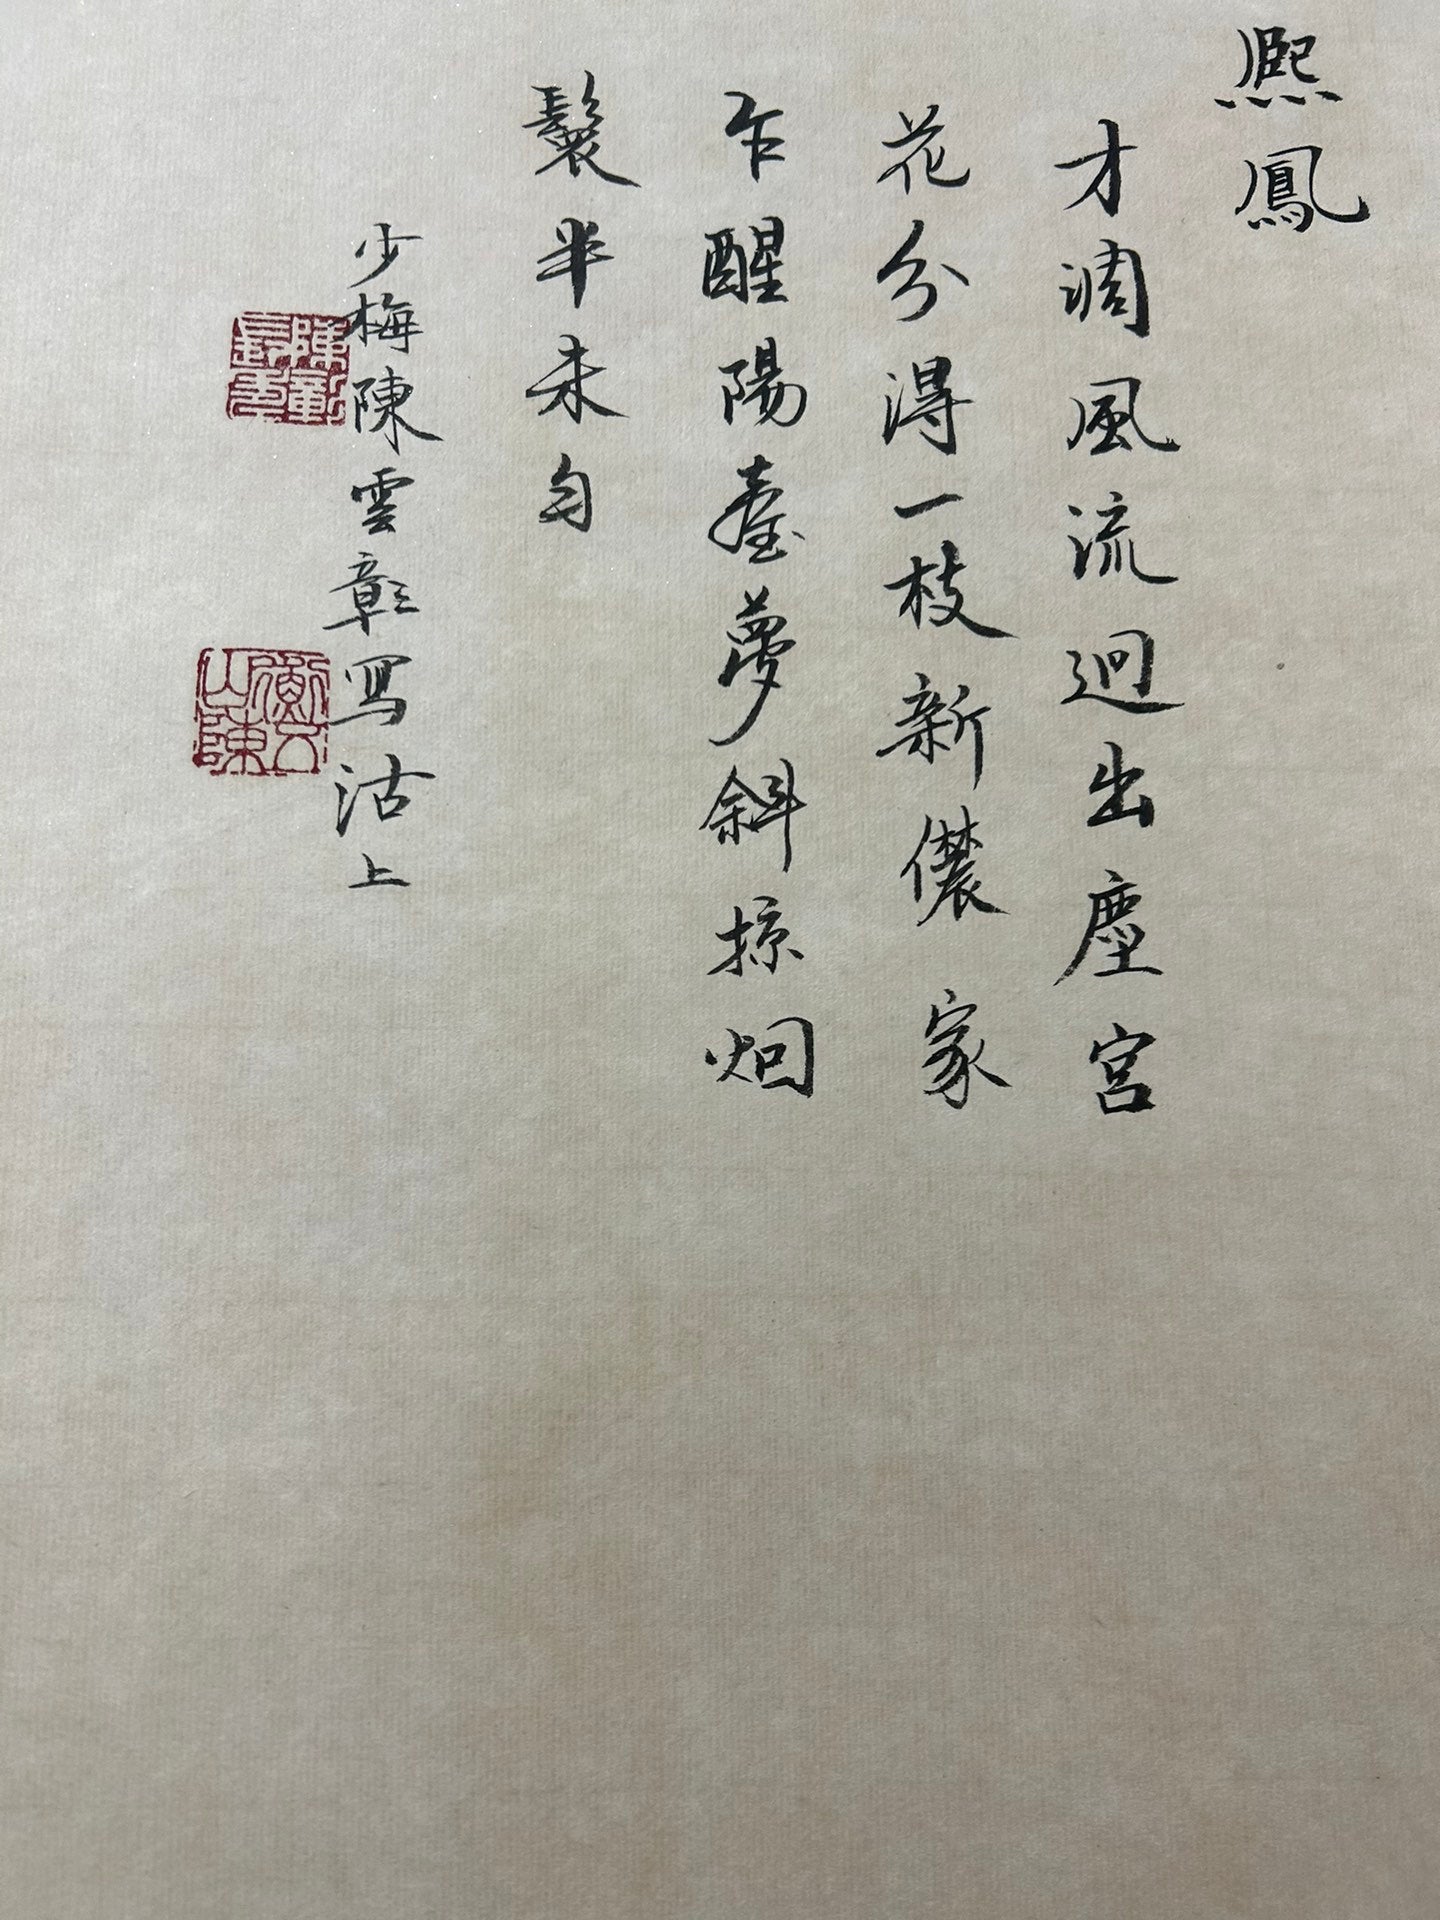 熙鳳
才調風流迥出塵宮
花分得一枝新儂家
乍醒陽臺夢斜掠烟
鬟半未勻
少梅陳雲彰寫沽上
陳雲彰